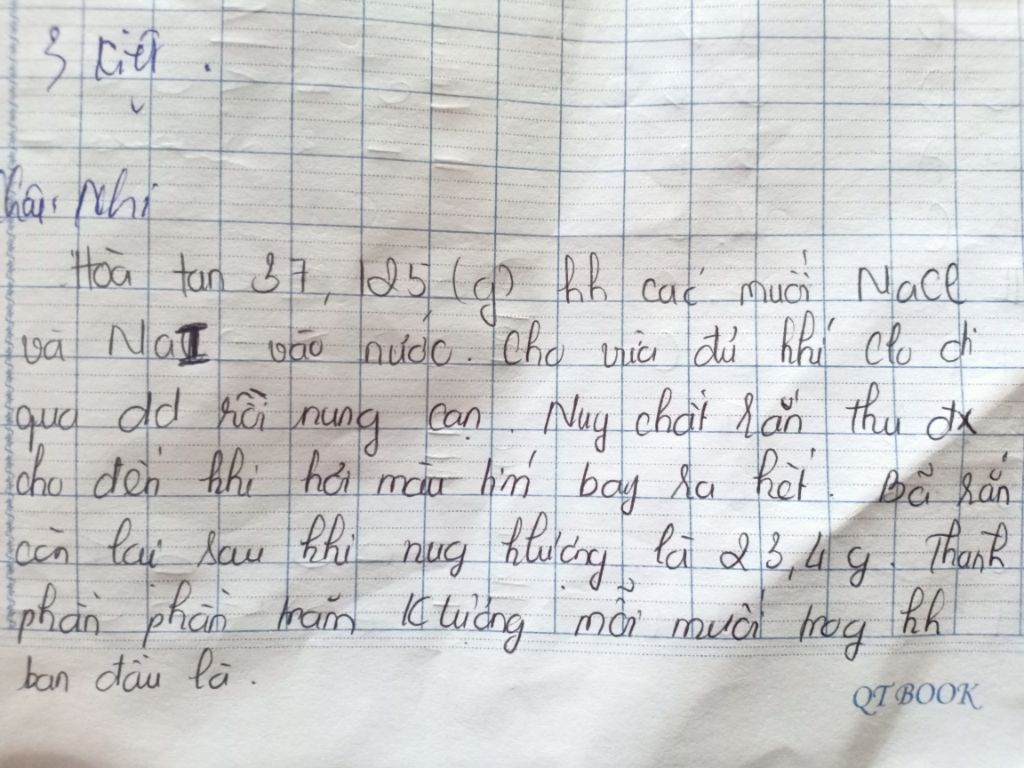 3 tiết.
Nhi
Hoà tan 37,125 (g) hh các muối NaCl
và NaI vào nước. Cho vừa đủ khí Clo đi
qua dd rồi nung cạn. Nug chất rắn thu đx
cho đến khi hơi màu tím bay ra hết. Bã rắn
còn lại sau khi nug klượng là 23,4 g. Thành
phần phần trăm klượng mỗi muối trog hh
ban đầu là.
QT BOOK